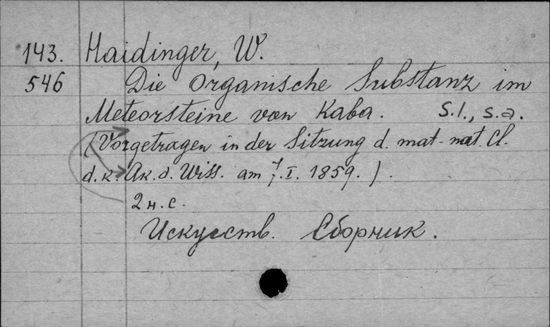 143. Haidinger, W.
546 Die Organische Substanz im
Meteorsteine von Kaba. S.l., s.a.
(Vorgetragen in der Sitzung d. mat-nat. Cl.
d. k. Ak. d. Wiss. am 7.I. 1859.).
2 н.с.
Искусств. Сборник.